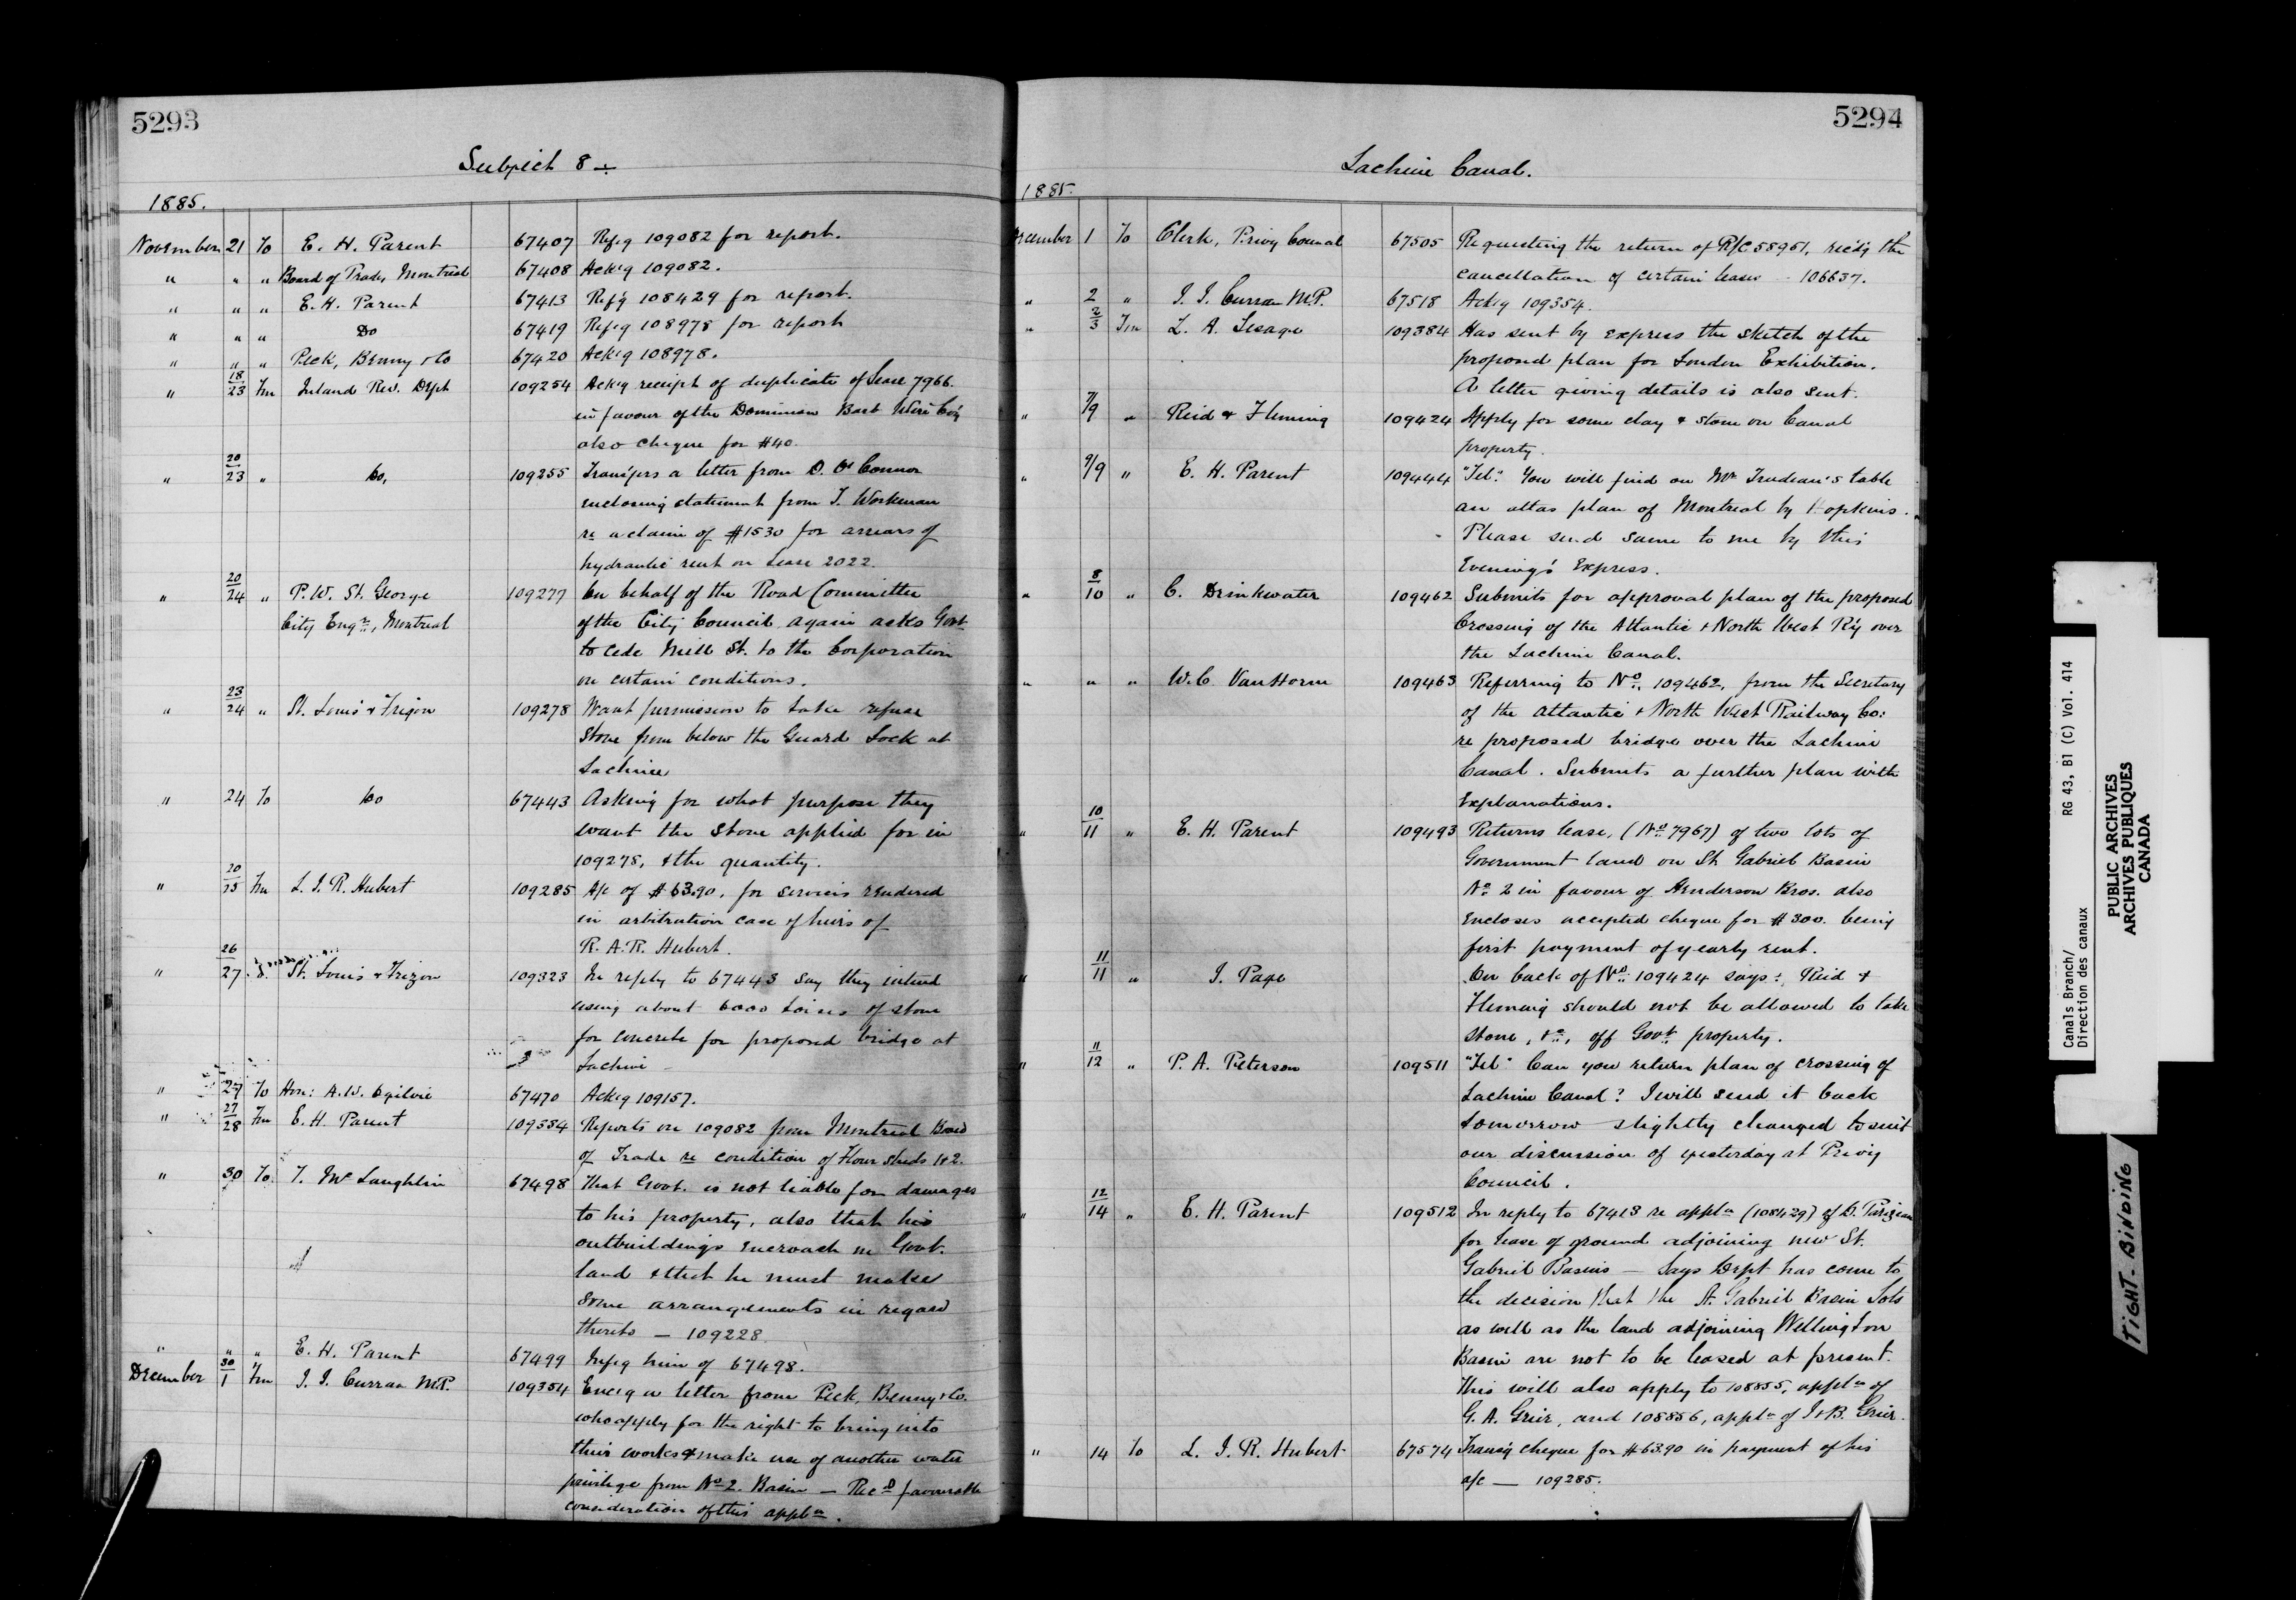 5293
Subject 8
1885.
November 21 To E. H. Parent 67407 Ref'g 109082 for report.
" " " Board of Trade, Montreal 67408 Ack'g 109082.
" " " E. H. Parent 67413 Ref'g 108429 for report.
" " " Do 67419 Ref'g 108978 for report
" " " Peck, Benny & Co 67420 Ack'g 108978.
" 18/23 Fm Inland Rev. Dept 109254 Ack'g receipt of duplicate of Lease 7966
in favour of the Dominion Barb Wire Co'y
also cheque for $40.
" 20/23 " Do, 109255 Transfers a letter from D. O'Connor
enclosing statement from T. Workman
re a claim of $1530 for arrears of
hydraulic rent on Lease 2022.
" 20/24 " P. W. St. George 109277 On behalf of the Road Committee
City Engr, Montreal of the City Council again asks Govt
to cede Mill St. to the Corporation
on certain conditions.
" 23/24 " St. Louis & Frigon 109278 Want permission to take refuse
stone from below the Guard Lock at
Lachine
" 24 To Do 67443 Asking for what purpose they
want the stone applied for in
109278, & the quantity.
" 20/25 Fm L. J. R. Hubert 109285 A/c of $63.90, for services rendered
in arbitration case of heirs of
R. A. R. Hubert.
" 26/27 St. Louis & Frigon 109323 In reply to 67443 say they intend
using about 6000 toises of stone
for concrete for proposed bridge at
Lachine
" 27 To Hon: A. W. Ogilvie 67470 Ack'g 109157.
" 27/28 Fm E. H. Parent 109334 Reports on 109082 from Montreal Board
of Trade re condition of Flour Sheds 1 & 2.
" 30 To T. McLaughlin 67498 That Govt. is not liable for damages
to his property, also that his
outbuildings encroach on Govt.
land & that he must make
some arrangements in regard
thereto — 109228
" " " E. H. Parent 67499 Infg him of 67498.
December 30/1 Fm J. J. Curran M.P. 109354 Enc'g a letter from Peck, Benny & Co.
who apply for the right to bring into
their works & make use of another water
privilege from No 2. Basin — Recd favourable
consideration of this appln.
5294
Lachine Canal.
1885.
December 1 To Clerk, Privy Council 67505 Requesting the return of R/C 58951, rec'd'g the
cancellation of certain leases — 106637.
" 2 " J. J. Curran M.P. 67518 Ack'g 109354.
" 2/3 Fm L. A. Lesage 109384 Has sent by express the sketch of the
proposed plan for London Exhibition.
A letter giving details is also sent.
" 7/9 " Reid & Fleming 109424 Apply for some clay & stone on Canal
property.
" 9/9 " E. H. Parent 109444 "Tel". You will find on Mr Trudeau's table
an atlas plan of Montreal by Hopkins.
Please send same to me by this
Evening's Express.
" 8/10 " C. Drinkwater 109462 Submits for approval plan of the proposed
Crossing of the Atlantic & North West R'y over
the Lachine Canal.
" " " W. C. Van Horne 109463 Referring to No 109462, from the Secretary
of the Atlantic & North West Railway Co:
re proposed bridge over the Lachine
Canal. Submits a further plan with
Explanations.
" 10/11 " E. H. Parent 109493 Returns lease, (No 7967) of two lots of
Government land on St. Gabriel Basin
No 2 in favour of Henderson Bros. also
Encloses accepted cheque for $300. being
first payment of yearly rent.
" 11/11 " J. Page On back of No 109424 says: Reid &
Fleming should not be allowed to take
stone, &c, off Govt property.
" 11/12 " P. A. Peterson 109511 "Tel" Can you return plan of crossing of
Lachine Canal? I will send it back
tomorrow slightly changed to suit
our discussion of yesterday at Privy
Council.
" 12/14 " E. H. Parent 109512 In reply to 67413 re appln (108429) of D. Parizeau
for lease of ground adjoining new St.
Gabriel Basins — Says Dept has come to
the decision that the St. Gabriel Basin Lots
as well as the land adjoining Wellington
Basin are not to be leased at present.
This will also apply to 108855, appln of
G. A. Grier, and 108856, appln of J & B. Grier.
" 14 To L. J. R. Hubert 67574 Trans'g cheque for $63.90 in payment of his
a/c — 109285.
Canals Branch/ RG 43, B1 (C) Vol. 414
Direction des canaux
PUBLIC ARCHIVES
ARCHIVES PUBLIQUES
CANADA
TIGHT-BINDING